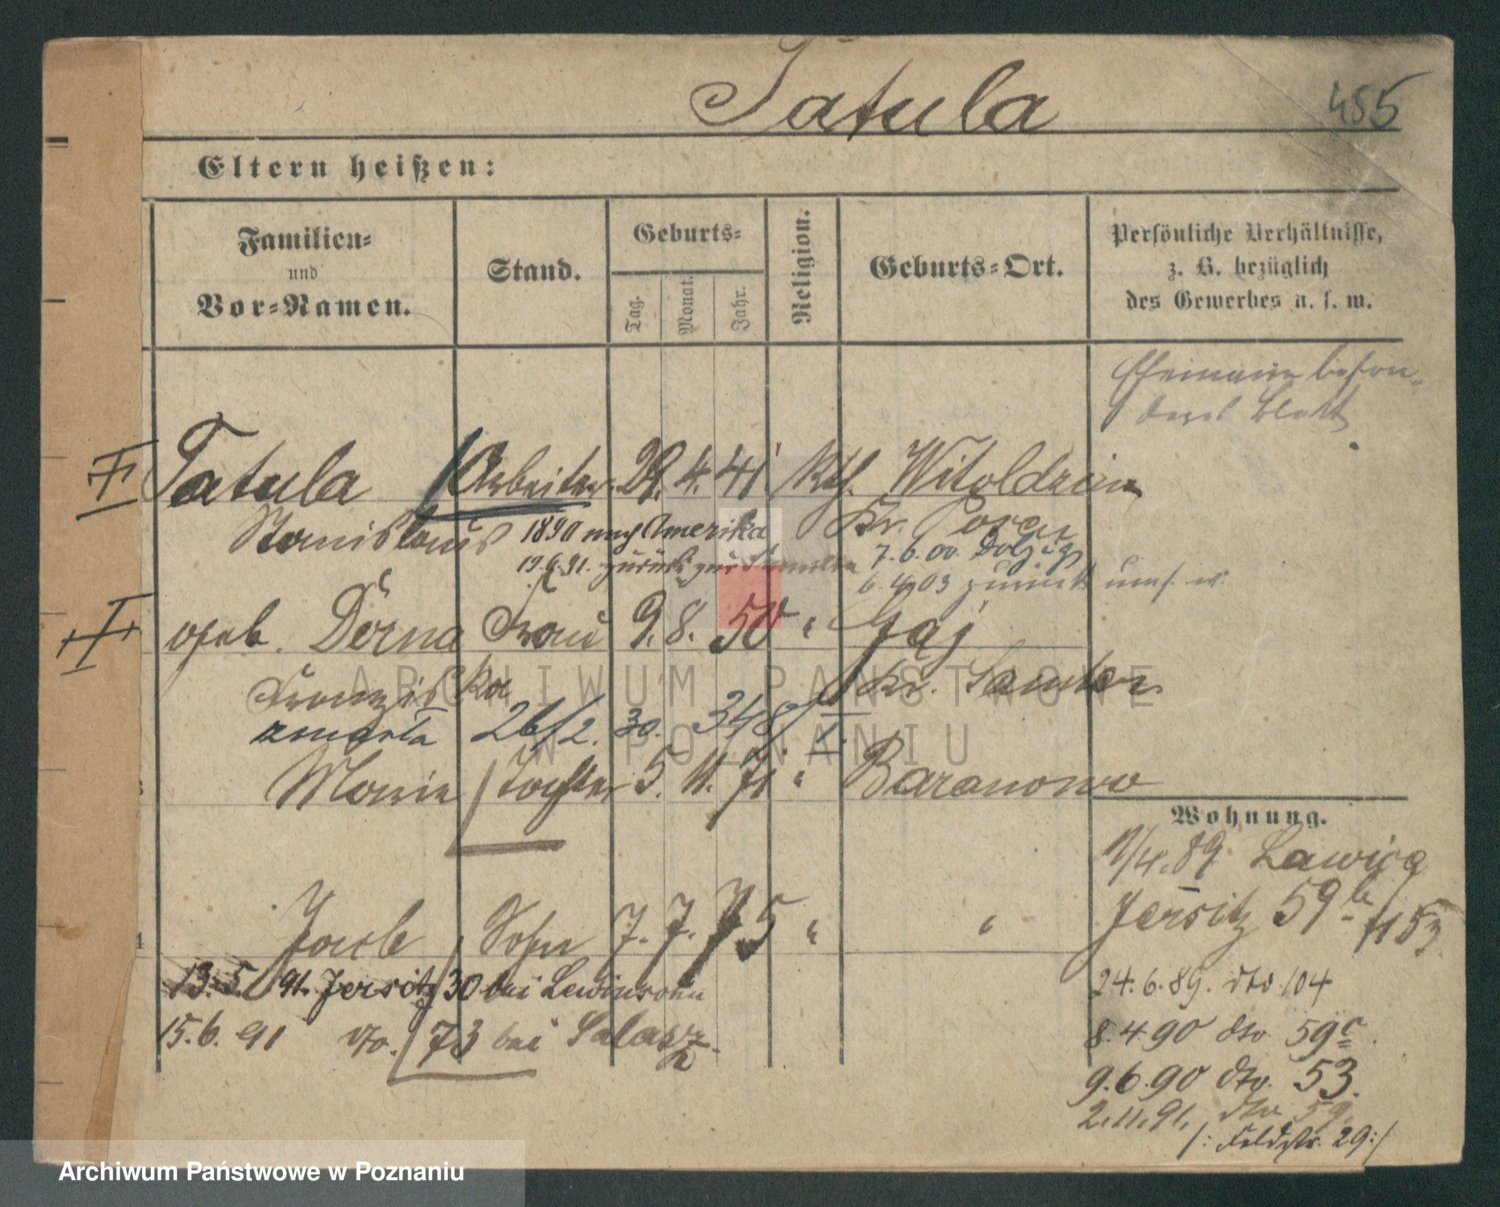 Tatula
455
Eltern heißen:
Familien-
und
Vor-Namen.
Stand.
Geburts-
Tag.
Monat.
Jahr.
Religion.
Geburts-Ort.
Persönliche Verhältnisse,
z. B. bezüglich
des Gewerbes u. s. w.
Ehemann beson-
deres Blatt
Tatula Arbeiter 29. 4. 41 kth. Witoldzin
Stanislaus 1890 nach Amerika Kr. Posen
19.6.91. zurück zur Familie 7.6.00.
6.4.03 zurück
geb. Derna Frau 9. 8. 50 " Gaj
Franziska Kr. Samter
zmarła 26/2. 30. 348/
Marie Tochter 5. 11. 71 " Baranowo
Wohnung.
11/4.89. Lawica
Jersitz 59b 1153
Jacob Sohn 7. 7. 75 " "
13.5.91. Jersitz 30 bei Lewinsohn
24.6.89. dto 104
15.6.91 dto. 73 bei
8.4.90 dto. 59c
9.6.90 dto. 53.
2.11.91. dto 59.
/: Feldstr. 29 :/
ARCHIWUM PAŃSTWOWE
W POZNANIU
Archiwum Państwowe w Poznaniu